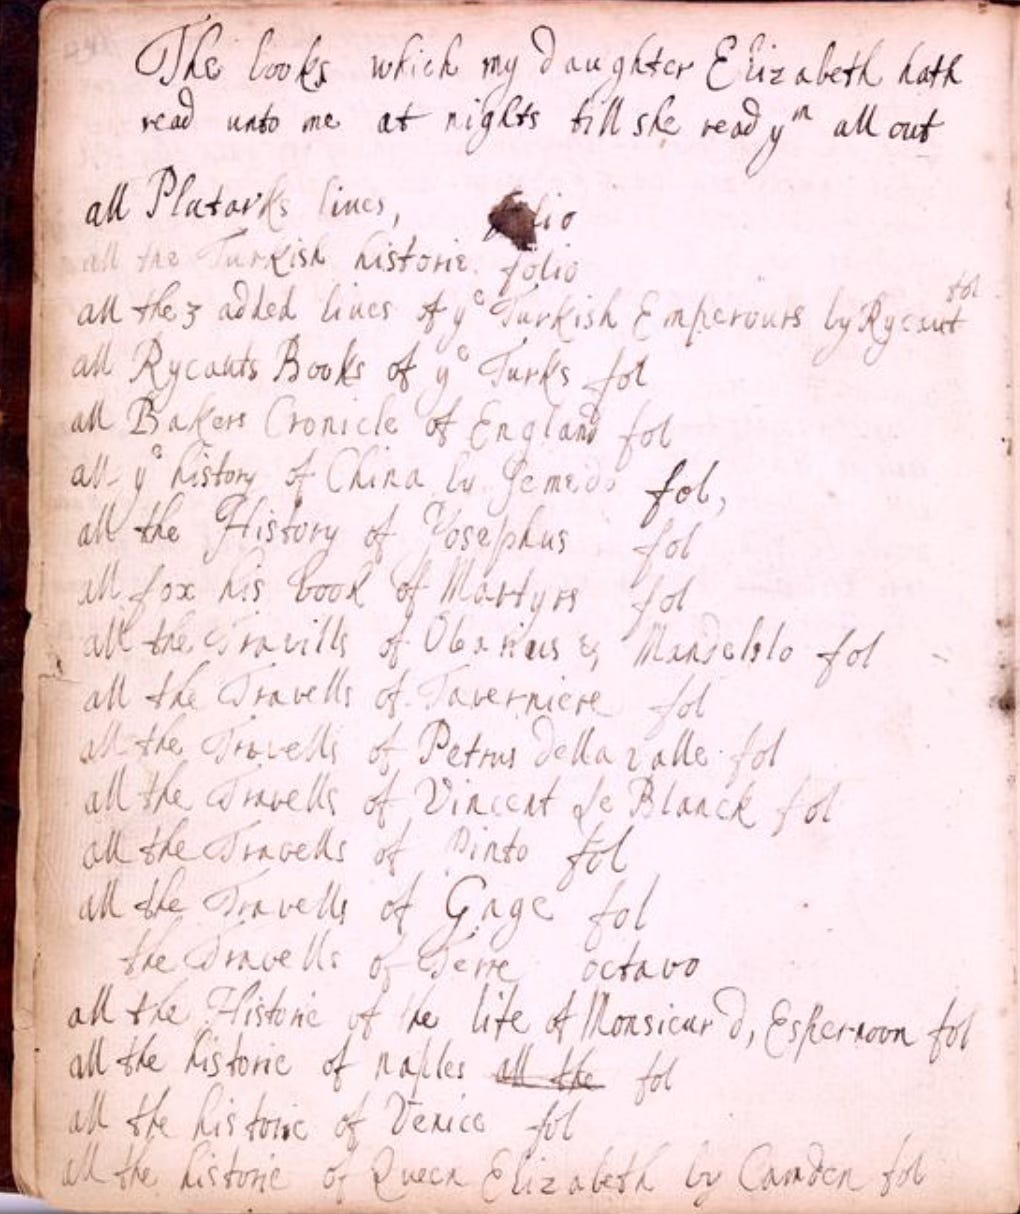 The books which my daughter Elizabeth hath
read unto me at nights till she read yᵐ all out
all Plutarks lives, folio
all the Turkish historie. folio
all the 3 added lives of yᵉ Turkish Emperours by Rycaut fol
all Rycauts Books of yᵉ Turks fol
all Bakers Cronicle of England fol
all yᵉ history of China by Semedo fol,
all the History of Josephus fol
all fox his book of Martyrs fol
all the Travills of Olearius & Mandelslo fol
all the Travells of Taverniere fol
all the Travells of Petrus della valle fol
all the Travells of Vincent le Blanck fol
all the Travells of Pinto fol
all the Travells of Gage fol
the Travells of Terre octavo
all the Historie of the life of Monsieur d, Espernoon fol
all the historie of naples all the fol
all the historie of Venice fol
all the historie of Queen Elizabeth by Camden fol